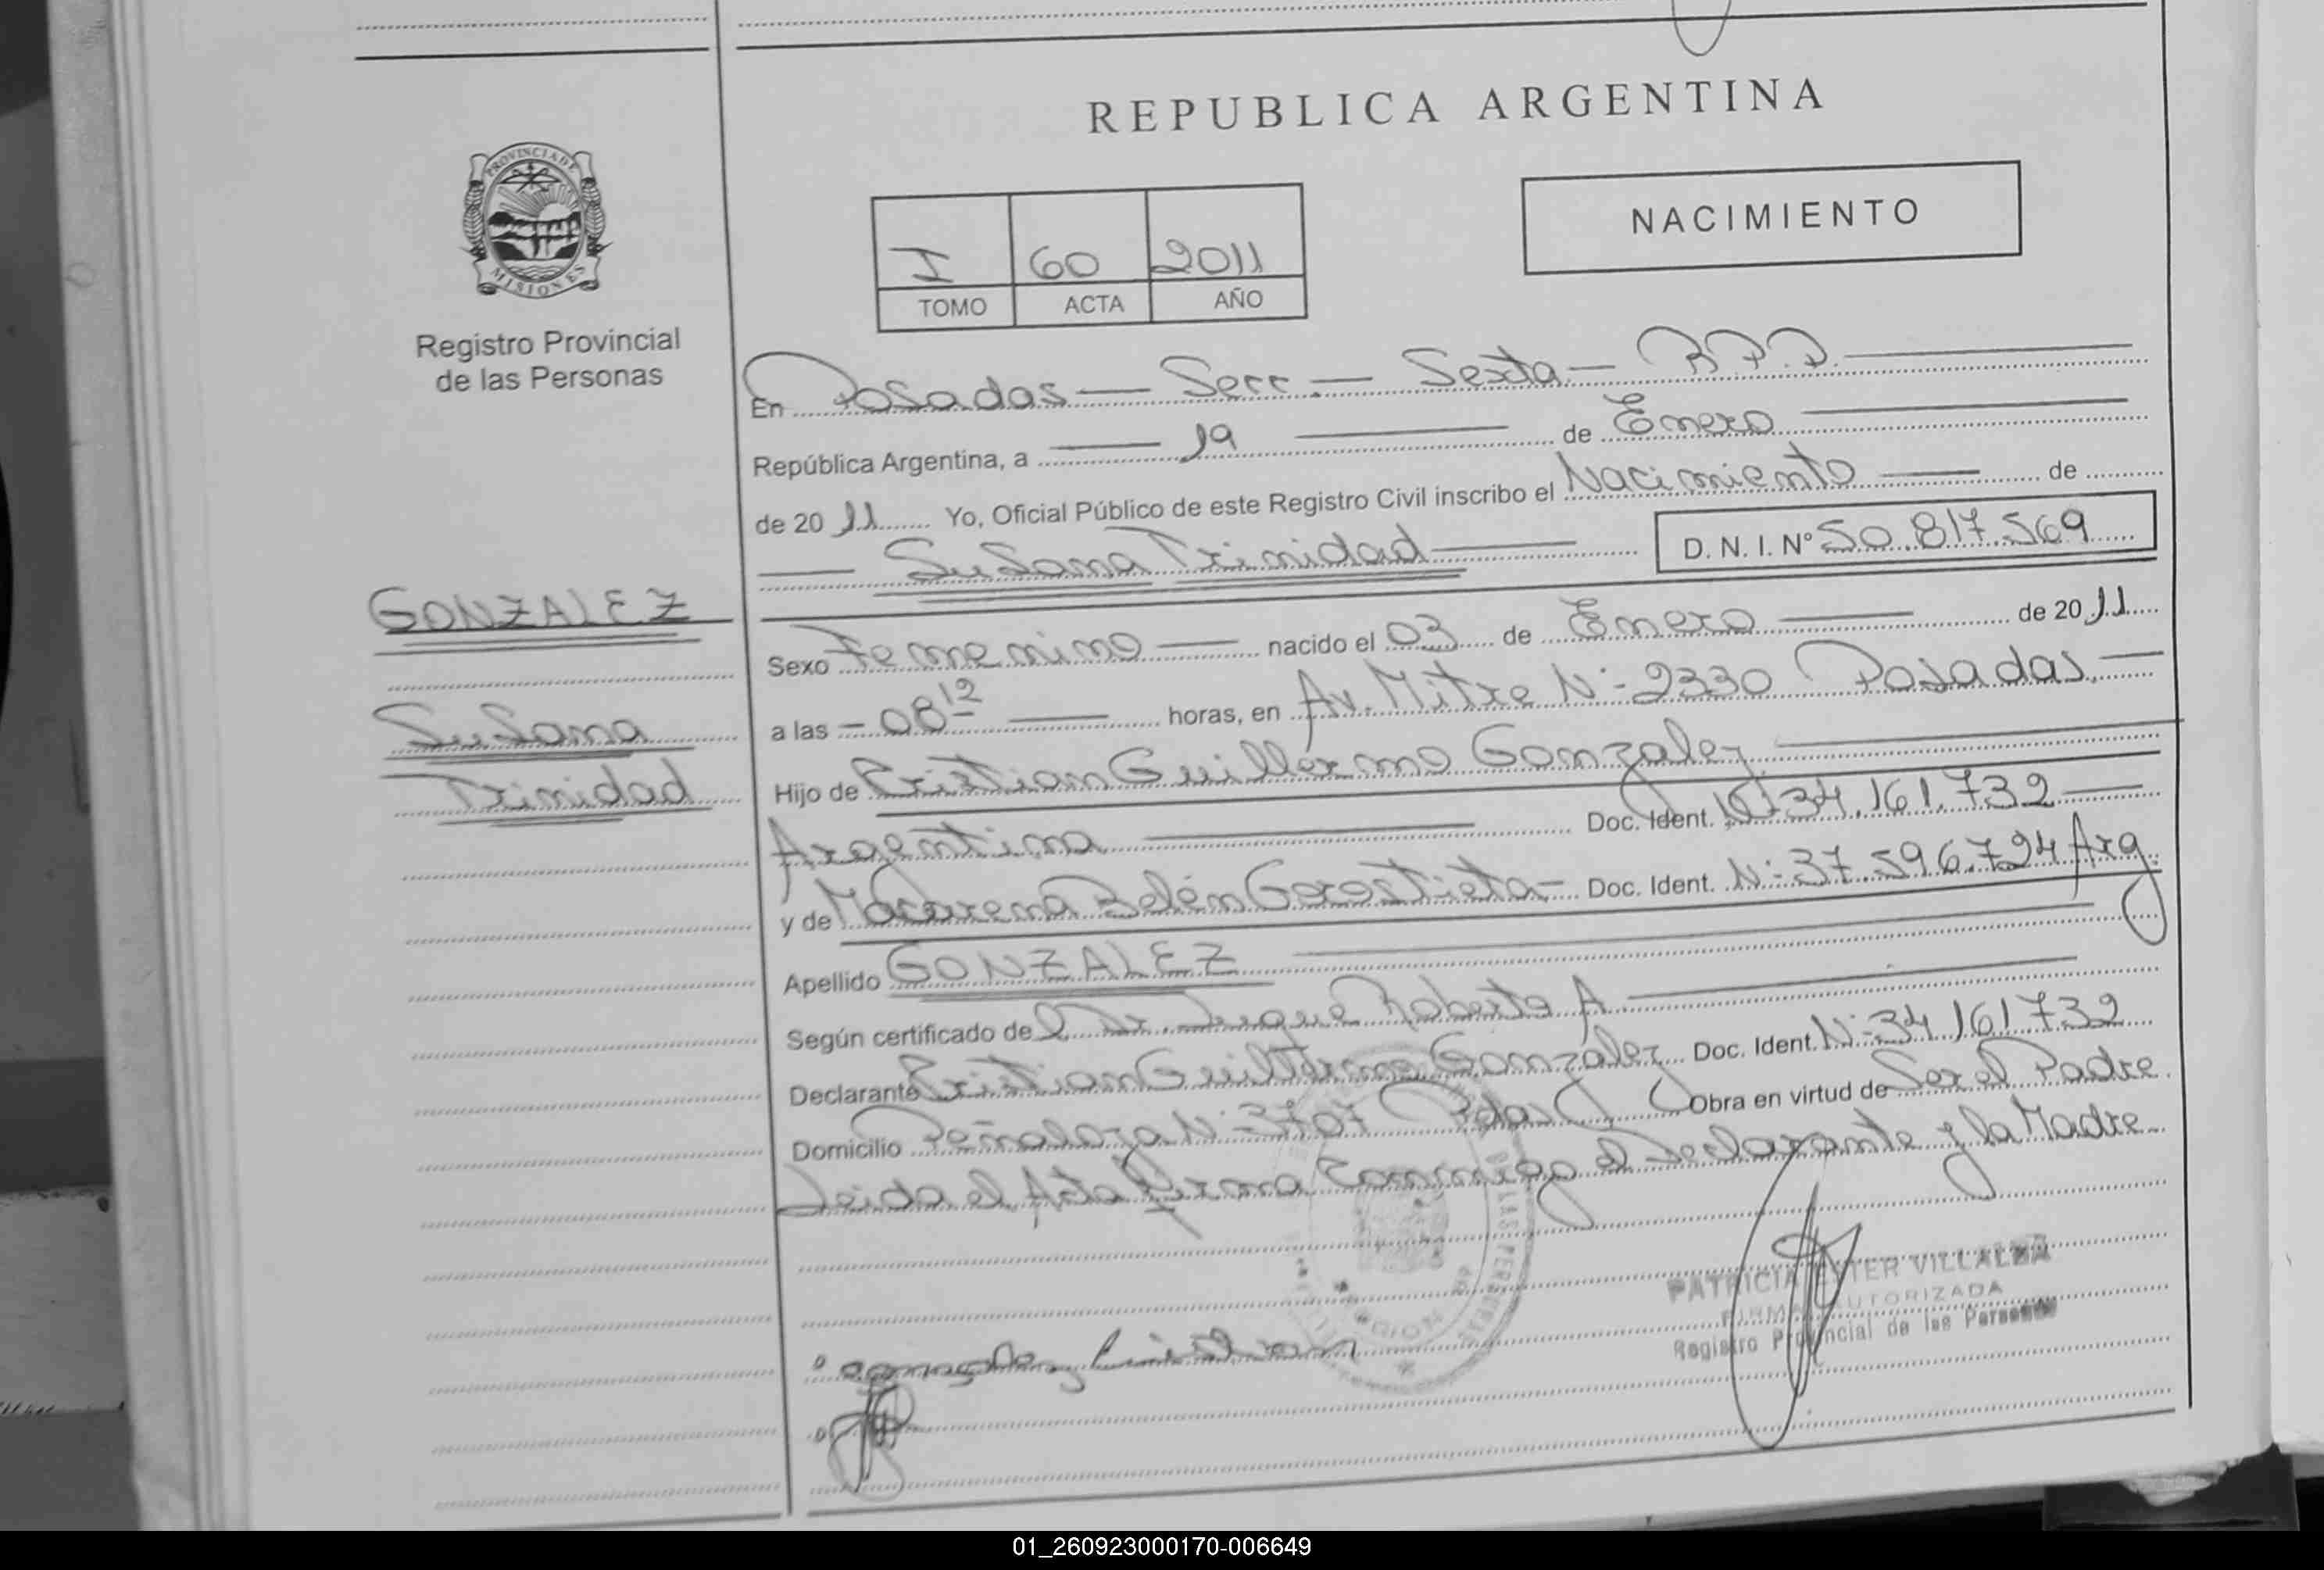 REPUBLICA ARGENTINA
NACIMIENTO
I 60 2011
TOMO ACTA AÑO
PROVINCIA DE
MISIONES
Registro Provincial
de las Personas
En Posadas — Secc. — Sexta — R.P.P.
República Argentina, a 19 de Enero
de 2011 Yo, Oficial Público de este Registro Civil inscribo el Nacimiento de
Susana Trinidad D. N. I. Nº 50.817.569
GONZALEZ
Susana
Trinidad
Sexo Femenino nacido el 03 de Enero de 2011
a las 08 12 horas, en Av. Mitre N: 2330 Posadas.
Hijo de Cristian Guillermo Gonzalez
Argentino Doc. Ident. N: 34.161.732
y de Macarena Belén Gerez Doc. Ident. N: 37.596.724 Arg.
Apellido GONZALEZ
Según certificado de Dr. Luque Roberto A
Declarante Cristian Guillermo Gonzalez Doc. Ident. N: 34.161.732
Domicilio Peñaloza N: Pdas Obra en virtud de Ser el Padre.
Leida el Acta firman conmigo el Declarante y la Madre
PATRICIA ESTER VILLALBA
FIRMA AUTORIZADA
Registro Provincial de las Personas
gonzalez cristian
01_260923000170-006649